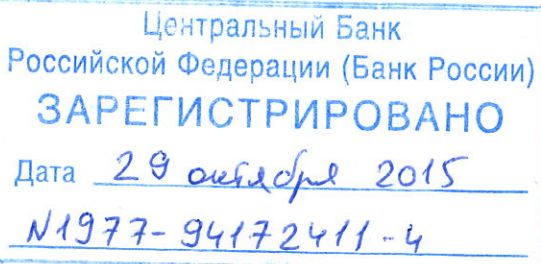 Центральный Банк
Российской Федерации (Банк России)
ЗАРЕГИСТРИРОВАНО
Дата 29 октября 2015
N1977-94172411-4